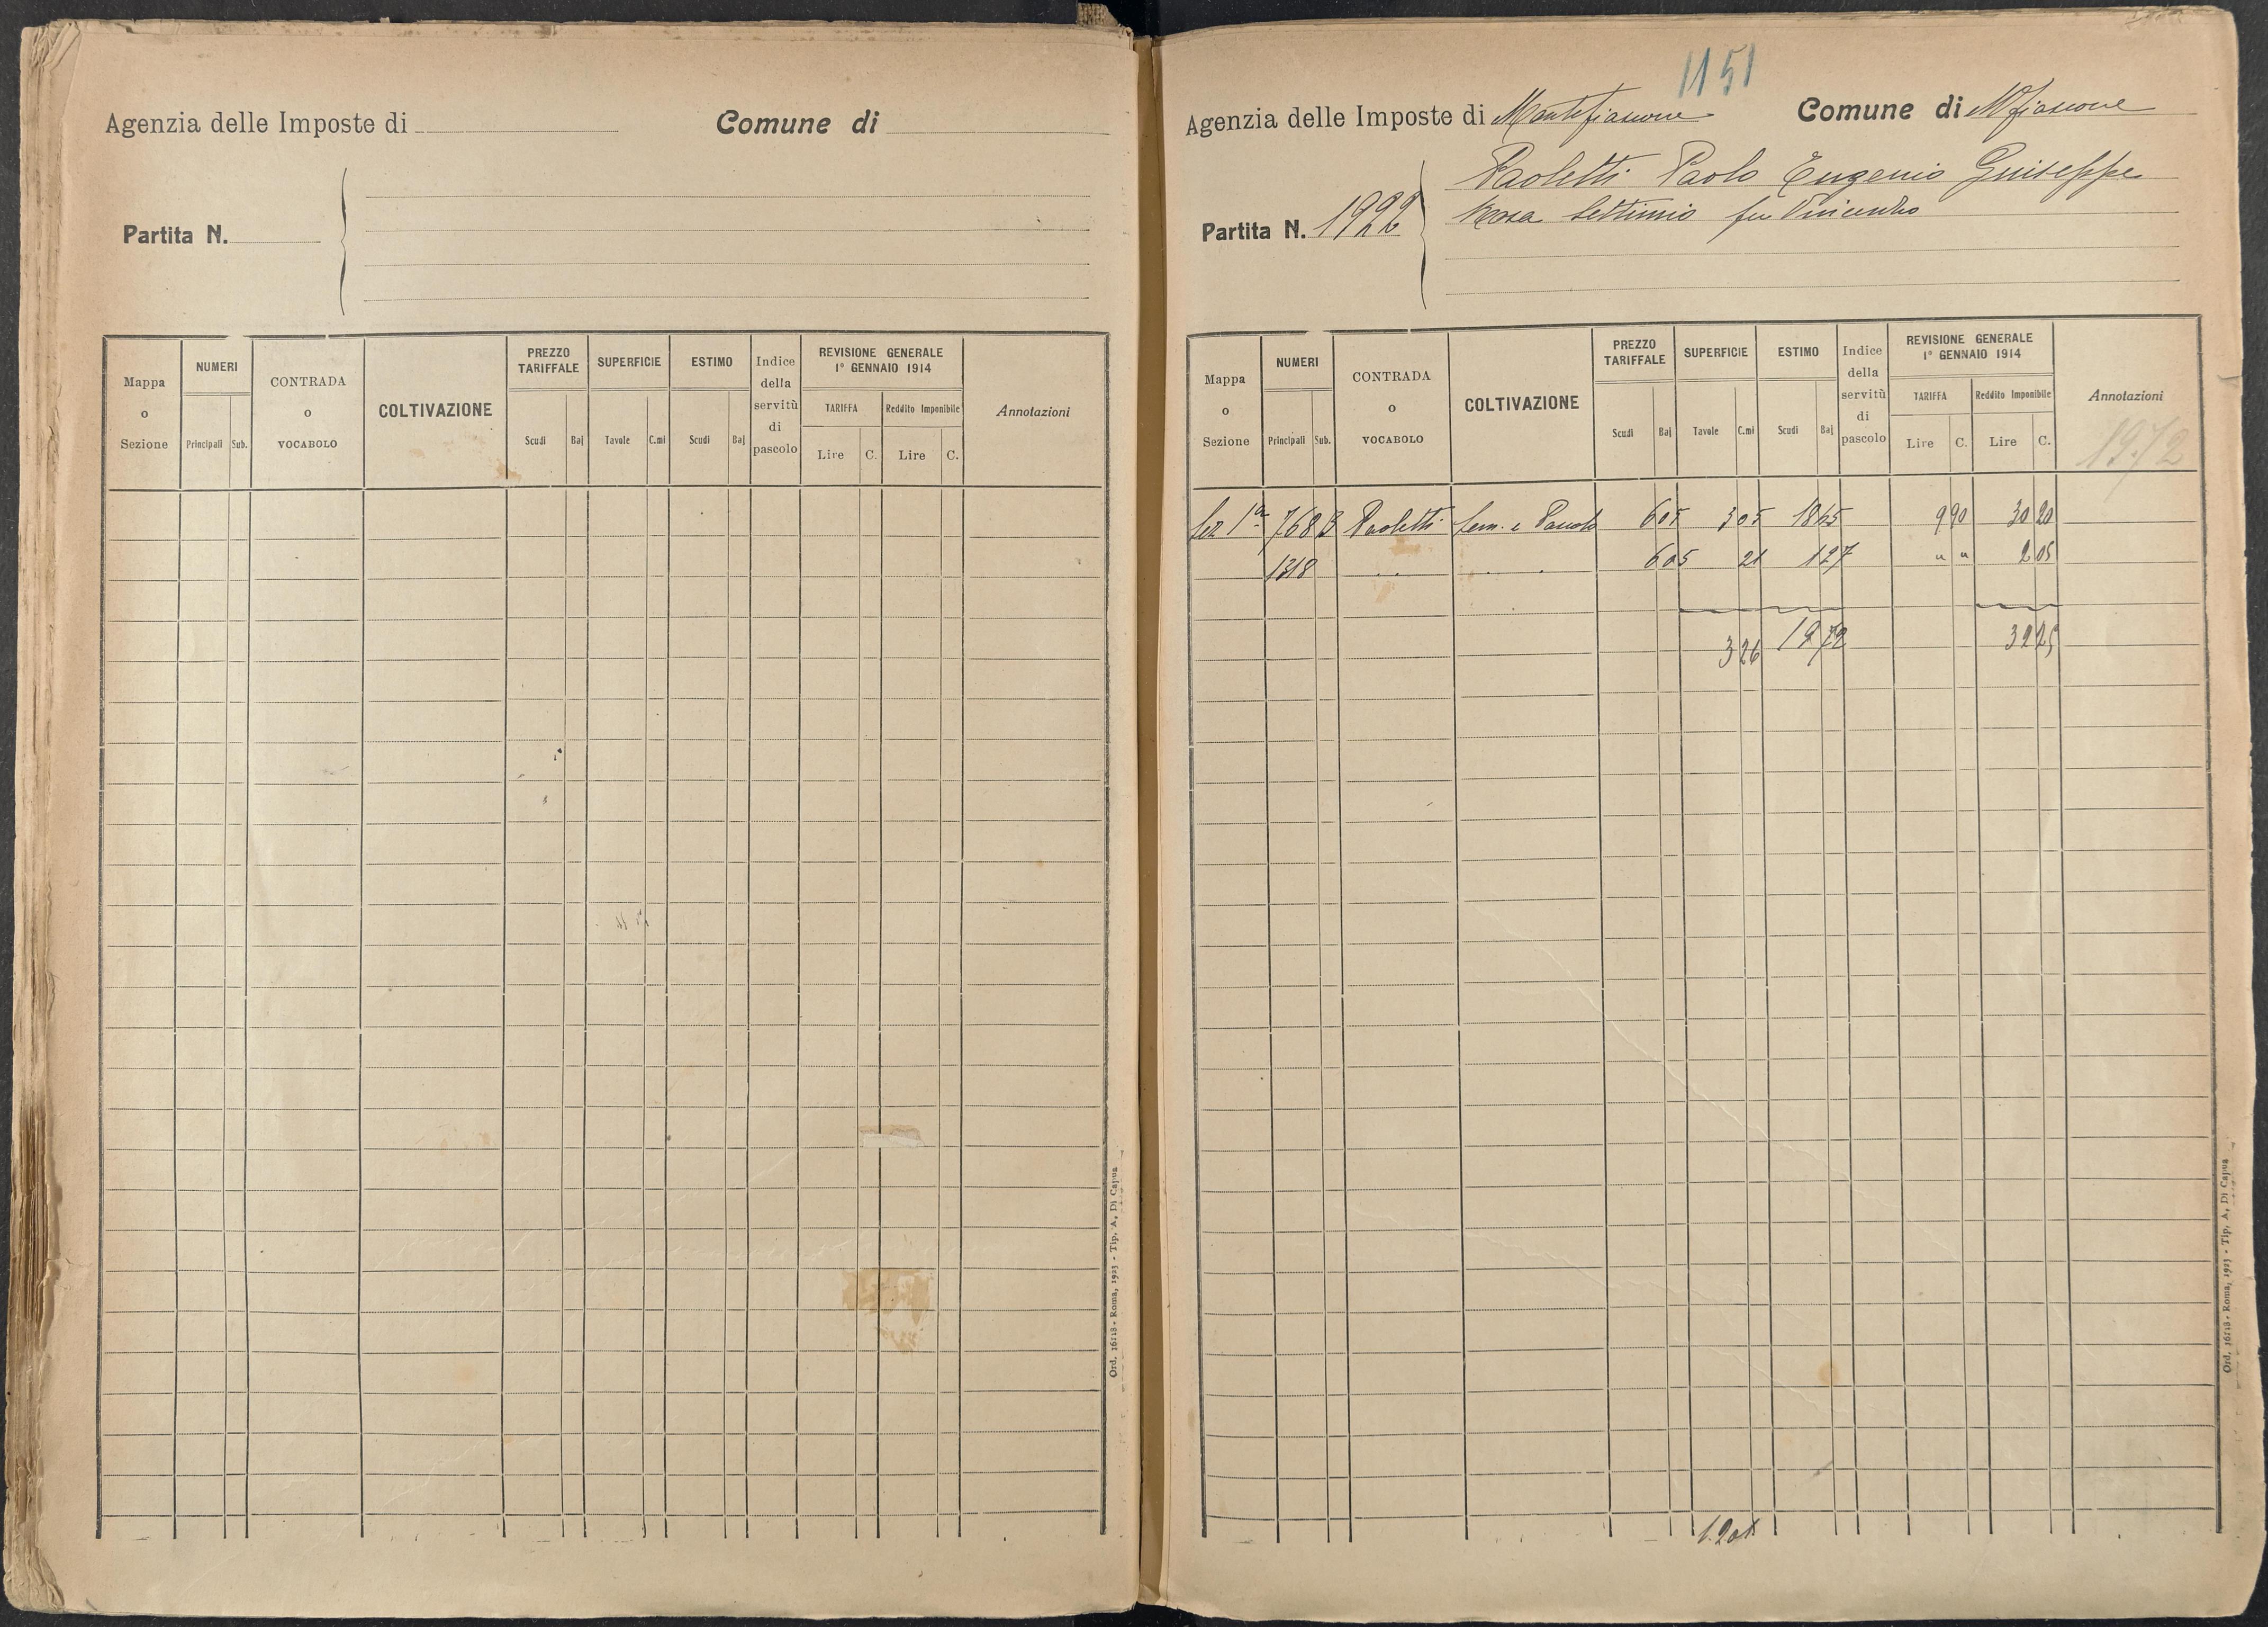 Agenzia delle Imposte di
Comune di
Partita N.
Mappa o Sezione
NUMERI
Principali
Sub.
CONTRADA o VOCABOLO
COLTIVAZIONE
PREZZO TARIFFALE
Scudi
Baj
SUPERFICIE
Tavole
C.mi
ESTIMO
Scudi
Baj
Indice della servitù di pascolo
REVISIONE GENERALE
1° GENNAIO 1914
TARIFFA
Reddito Imponibile
Lire
C.
Lire
C.
Annotazioni
Ord. 16118 - Roma, 1923 - Tip. A. Di Capua
1151
Agenzia delle Imposte di Montefiascone
Comune di Mfiascone
Partita N. 1992
Paoletti Paolo Eugenio Guiseppe
Rosa Settimio fu Vincenzo
Mappa o Sezione
NUMERI
Principali
Sub.
CONTRADA o VOCABOLO
COLTIVAZIONE
PREZZO TARIFFALE
Scudi
Baj
SUPERFICIE
Tavole
C.mi
ESTIMO
Scudi
Baj
Indice della servitù di pascolo
REVISIONE GENERALE
1° GENNAIO 1914
TARIFFA
Reddito Imponibile
Lire
C.
Lire
C.
Annotazioni
1972
Sez 1a 768 3 Paoletti Sem. e 605 305 1845 9 90 30 20
1318 605 21 127 " " 2 05
326 1972 32 25
Ord. 16118 - Roma, 1923 - Tip. A. Di Capua